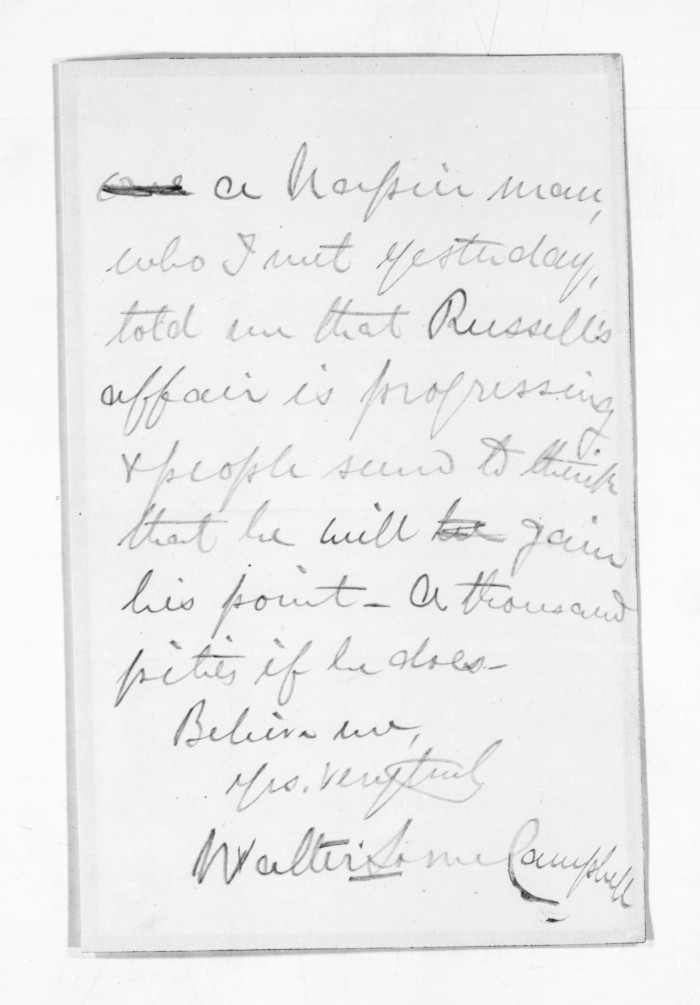 a Napier man,
who I met yesterday,
told me that Russell's
affair is progressing
& people seem to think
that he will gain
his point - a thousand
pities if he does -
Believe me,
yrs. very truly
Walter Lorne Campbell